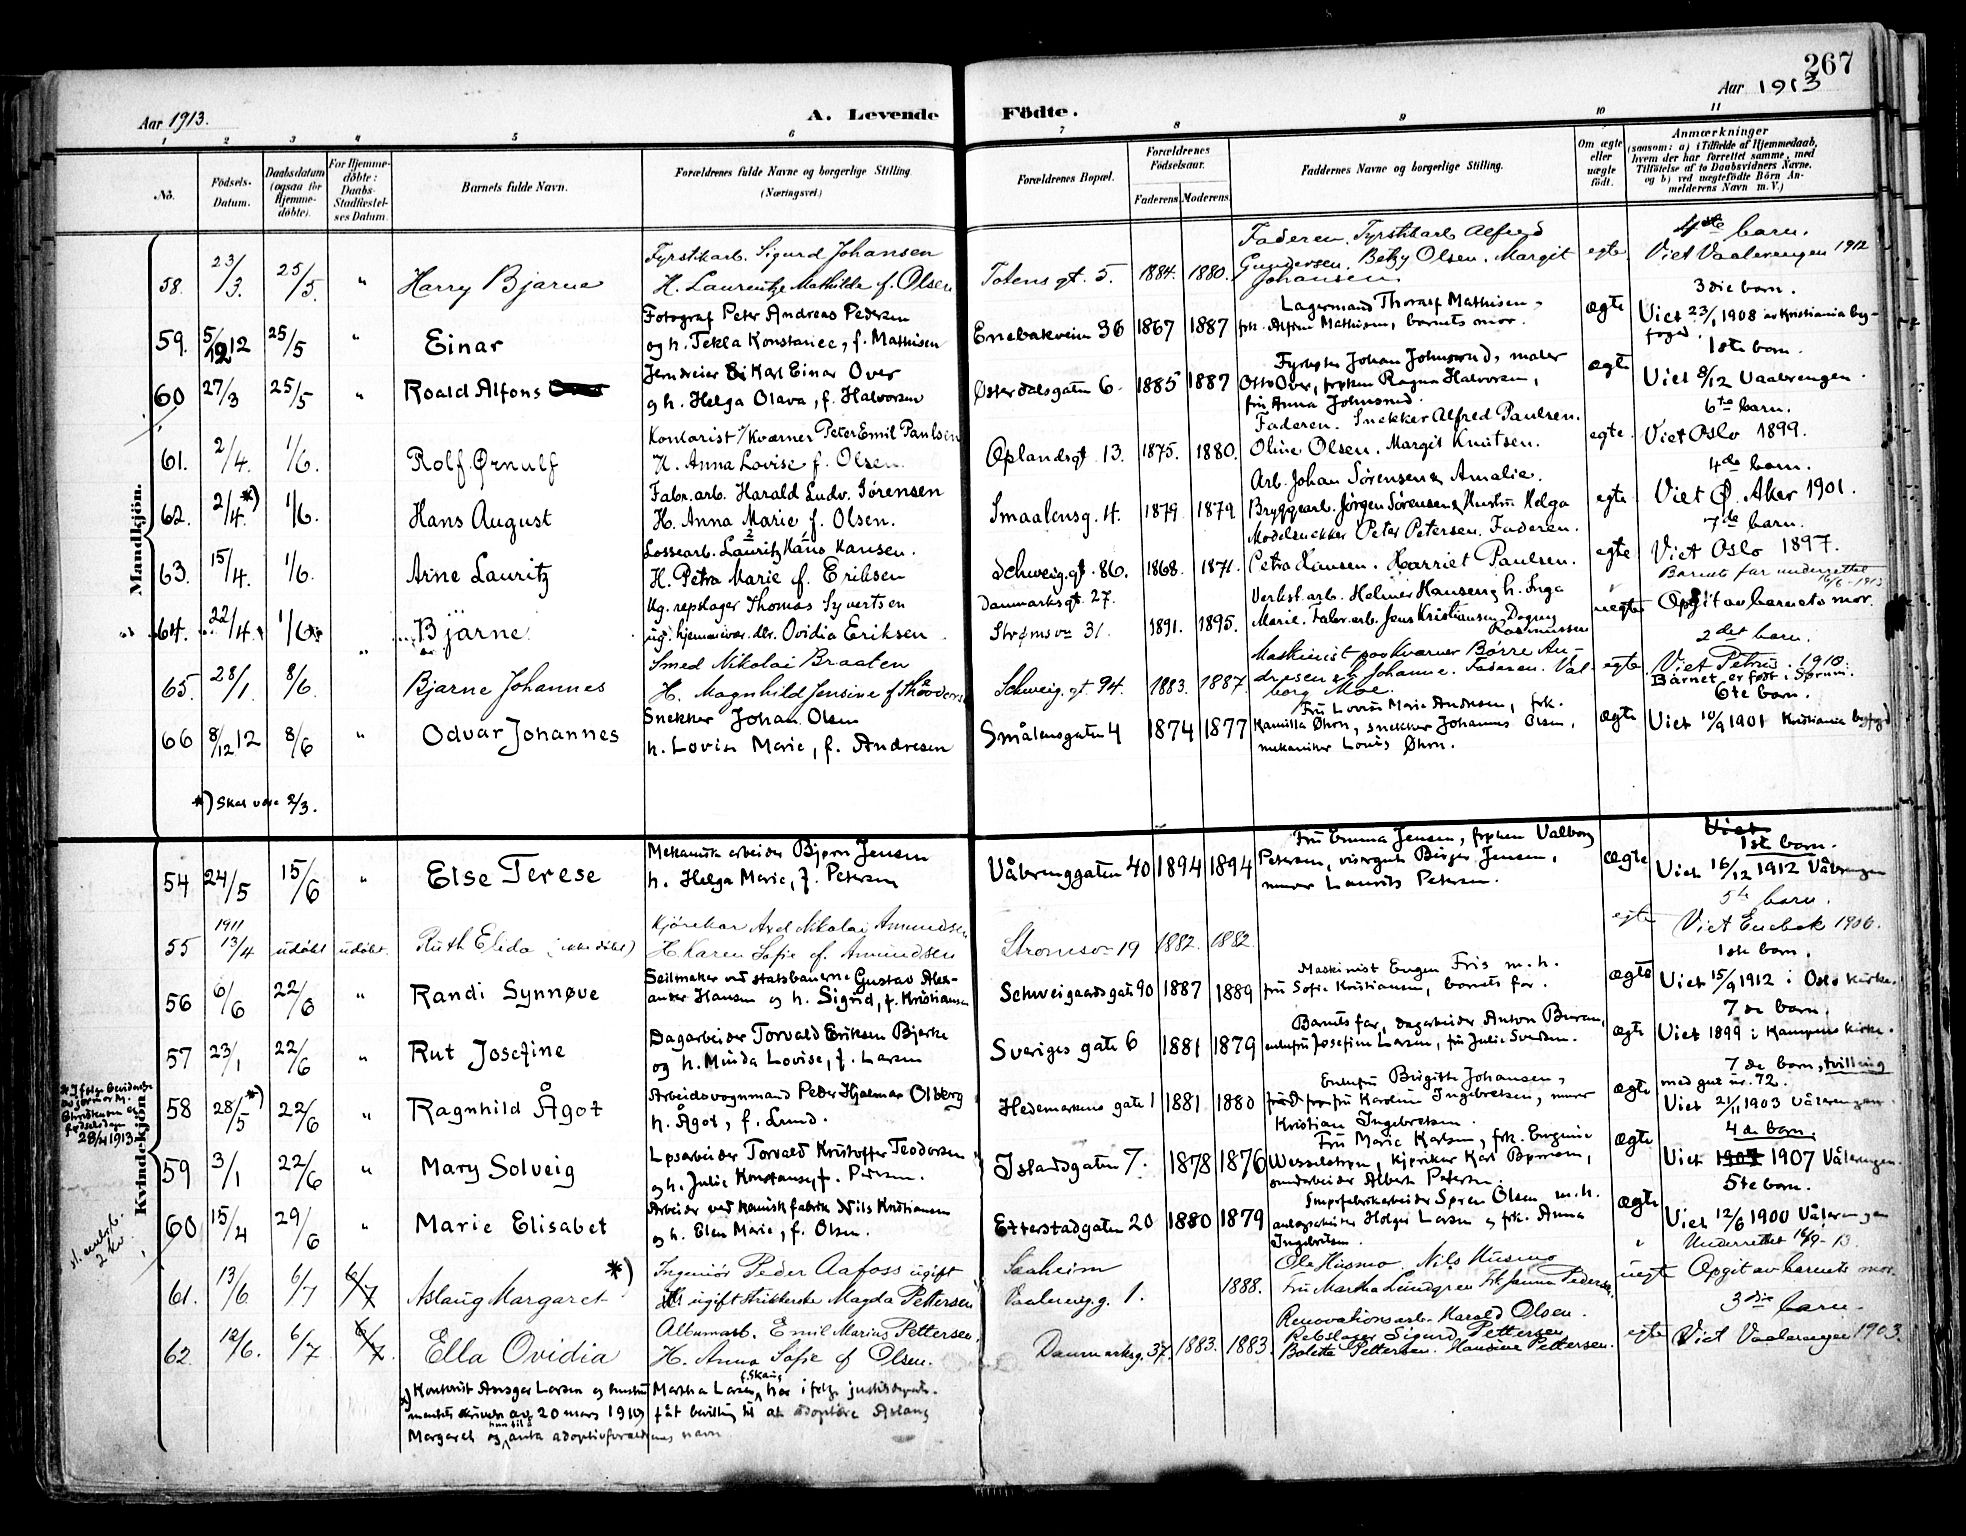 267
Aar 1913.
A. Levende
Födte.
Aar 1913
1 2 3 4 5 6 7 8 9 10 11
No.
Födsels-Datum.
Daabsdatum (ogsaa for Hjemme-döbte).
For Hjemme-döbte: Daabs-Stadfæstel-ses Datum.
Barnets fulde Navn.
Forældrenes fulde Navne og borgerlige Stilling.
(Næringsvei.)
Forældrenes Bopæl.
Forældrenes Födselsaar.
Faderens Moderens
Faddernes Navne og borgerlige Stilling.
Om ægte eller uægte födt.
Anmærkninger
(saasom: a) i Tilfælde af Hjemmedaab, hvem der har forrettet samme, med Tilföielse af to Daabsvidners Navne, og b) ved uægtefödte Börn An-melderens Navn m. V.)
Mandkjön.
58. 23/3. 25/5. " Harry Bjarne
Fyrstikarb. Sigurd Johansen
H. Laurentze Mathilde f. Olsen
Totens gt. 5. 1884. 1880.
Faderen. Fyrstikarb Alfred
Gundersen. Betzy Olsen. Margit
Johansen
egte
4de barn.
Viet Vaalerengen 1912
59. 5/12 12 25/5 " Einar
Fotograf Peter Andreas Pedersen
og h. Tekla Konstance, f. Mathisen
Enebakveien 36 1867 1887
Lagermand Thoralf Mathisen,
frk. Mathisen, barnets mor.
ægte
3die barn.
Viet 23/1 1908 av Kristiania by-
foged.
60 27/3 25/5 " Roald Alfons
Jerndreier Karl Einar Over
og h. Helga Olava, f. Halvorsen
Østerdalsgaten 6. 1885 1887
Johan Johnsrud, maler
Otto Over, frøken Ragna Halvorsen,
fru Anna Johnsrud.
ægte
1ste barn.
Viet 8/12 Vaalerengen.
61. 2/4. 1/6. Rolf Ørnulf
Kontorist v/Kværner Peter Emil Paulsen
H. Anna Lovise f. Olsen.
Oplandsgt. 13. 1875. 1880.
Faderen. Snekker Alfred Paulsen.
Oline Olsen. Margit Knutsen.
egte.
6te barn.
Viet Oslo 1899.
62. 2/4. *) 1/6. Hans August
Fabr. arb. Harald Ludv. Sørensen
H. Anna Marie f. Olsen.
Smaalensg. 4. 1879. 1879
Arb. Johan Sørensen & Amalie.
Bryggearb. Jørgen Sørensen & Hustru Helga
egte
4de barn.
Viet Ø. Aker 1901.
63. 15/4. 1/6. Arne Lauritz
Lossearb. Lauritz Hans Hansen.
H. Petra Marie f. Eriksen
Schweig. gt. 86. 1868. 1871.
Modelsnekker Peter Petersen. Faderen.
Petra Hansen. Harriet Paulsen.
egte
7de barn.
Viet Oslo 1897.
64. 22/4. 1/6 Bjarne
Ug. repslager Thomas Syvertsen
ug. hjemmevær. dtr. Ovidia Eriksen
Danmarksgt. 27.
Strømsv. 31. 1891. 1895.
Verkst. arb. Helmer Hansen & h. Inga
Marie. Fabr. arb. Jens Kristiansen. Dagny
Rasmussen
uegte
Barnets far underrettet
16/6-1913
Opgit av barnets mor.
65. 28/1. 8/6. " Bjarne Johannes
Smed Nikolai Braaten
H. Magnhild Jensine f.
Schweig. gt. 94. 1883. 1887.
Maskinist paa Kværner Børre An-
dresen & Johanne. Faderen. Val
borg Moe.
egte
2det barn.
Viet Petrus. 1910.
Barnet er født i Sørum.
66 8/12 12 8/6 " Odvar Johannes
Snekker Johan Olsen
h. Lovise Marie, f. Andresen
Smålensgaten 4 1874 1877
Fru Lovise Marie Andresen, frk.
Kamilla Øhrn, snekker Johannes Olsen,
mekaniker Louis Øhrn.
ægte
6te barn.
Viet 10/9 1901 Kristiania byfoged
*) Skal være 2/3.
Kvindekjön.
54 24/5 15/6 " Else Terese
Mekanisk arbeider Bjørn Jensen
h. Helga Marie, f. Petersen
Vålerenggaten 40 1894 1894
Fru Emma Jensen, frøken Valborg
Petersen, visergut Birger Jensen,
murer Laurits Petersen.
ægte
Viet
1ste barn.
Viet 16/12 1912 Vålerengen
55 1911 13/4 udøbt udøbt. Ruth Elida (ikke døbt)
Kjørekar Axel Nikolai Amundsen
H. Karen Sofie f. Amundsen
Strømsv. 19 1882. 1882.
egte
5te barn.
Viet Enebak 1906.
56 6/6 22/6 " Randi Synnøve
Seilmaker ved statsbanerne Gustav Alex-
ander Hansen og h. Sigrid, f. Kristiansen
Schweigaardsgate 90 1887 1889
Maskinist Eugen Fris m. h.
fru Sofie Kristiansen, barnets far.
ægte
1ste barn.
Viet 15/9 1912 i Oslo kirke.
57 23/1 22/6 " Rut Josefine
Dagarbeider Torvald Eriksen Bjerke
og h. Minda Lovise, f. Larsen
Sveriges gate 6 1881 1879
Barnets far, dagarbeider Anton Buran,
enkefru Josefine Larsen, fru Julie Svendsen.
ægte
7de barn.
Viet 1899 i Kampens kirke.
58 28/5 *) 22/6 " Ragnhild Ågot
Arbeidsvognmand Peder Hjalmar Olberg
h. Ågot, f. Lund.
Hedemarkens gate 1 1881 1880
Enkefru Birgitte Johansen,
fru Karoline Ingebretsen, murer
Kristian Ingebretsen.
ægte
7de barn, tvilling
med gut nr. 72.
Viet 21/11 1903 Vålerengen.
28/4 1913
59 3/1 22/6 " Mary Solveig
Løsarbeider Torvald Kristoffer Teodorsen
og h. Julie Konstanse, f. Pedersen.
Islandsgaten 7. 1878 1876
Fru Marie Karlsen, frk. Eugenie
Wesselstrøm, Karl Bjørnson,
Albert Petersen.
ægte
4de barn.
Viet 1907 Vålerengen.
60 15/4 29/6 " Marie Elisabet
Arbeider ved kemisk fabrik Nils Kristiansen
og h. Elen Marie, f. Olsen.
Etterstadgaten 20 1880 1879
Søren Olsen m. h.
Holger Larsen og frk. Anna
Ingebretsen.
ægte
5te barn.
Viet 12/6 1900 Vålerengen
61. 13/6 6/7 6/7 Aslaug Margaret *)
Ingeniör Peder Aafoss ugift
ugift strikkerske Magda Pettersen
Saaheim
Vaalereng. g. 1. 1888.
Ole Husmo. Nils Husmo
Fru Martha Lundgren Frk Janna Pedersen.
uegte
Underrettet 16/9-13.
Opgit av barnets mor.
62. 12/6. 6/7 6/7. Ella Ovidia
Albumarb. Emil Marius Pettersen.
H. Anna Sofie f Olsen.
Danmarksg. 37. 1883. 1883.
Renovationsarb. Harald Olsen.
Rebslager Sigurd Pettersen
Bolette Pettersen. Hansine Pettersen.
egte
3die barn.
Viet Vaalerengen 1903.
*) Kontorist Ansgar Larsen og hustru Martha Larsen f. Skaug har ifølge justitsdeparte-
mentets skrivelse av 20 mars 1919 fåt bevilling til at adoptere Aslaug
Margaret og anta adoptivforældrenes navn